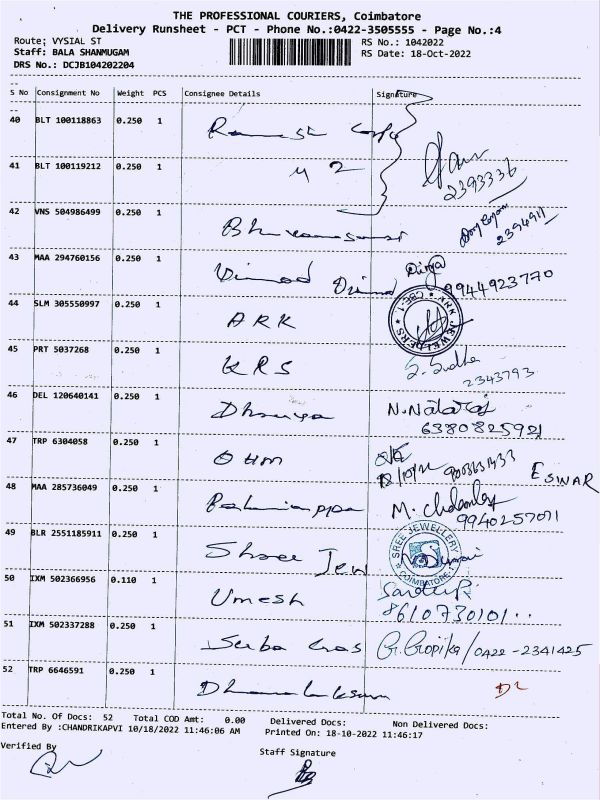 THE PROFESSIONAL COURIERS, Coimbatore
Delivery Runsheet - PCT - Phone No.:0422-3505555 - Page No.:4
Route: VYSIAL ST RS No.: 1042022
Staff: BALA SHANMUGAM RS Date: 18-Oct-2022
DRS No.: DCJB104202204
S No Consignment No Weight PCS Consignee Details Signature
40 BLT 100118863 0.250 1
41 BLT 100119212 0.250 1 2393336
42 VNS 504986499 0.250 1
43 MAA 294760156 0.250 1 Vinod Divya 9944923770
44 SLM 305550997 0.250 1 ARK ARK JEWELLERS CBE-1
45 PRT 5037268 0.250 1 KRS S. Sudha 2343793
46 DEL 120640141 0.250 1 N. Nataraj 6380825921
47 TRP 6304058 0.250 1 ESWAR
48 MAA 285736049 0.250 1 Palaniappa M. 9940257071
49 BLR 2551185911 0.250 1 Shree Jew SREE JEWELLERY COIMBATORE-1
50 IXM 502366956 0.110 1 Umesh 8610730101
51 IXM 502337288 0.250 1 G. Gopika/0422-2341425
52 TRP 6646591 0.250 1
Total No. Of Docs: 52 Total COD Amt: 0.00 Delivered Docs: Non Delivered Docs:
Entered By :CHANDRIKAPVI 10/18/2022 11:46:06 AM Printed On: 18-10-2022 11:46:17
Verified By Staff Signature